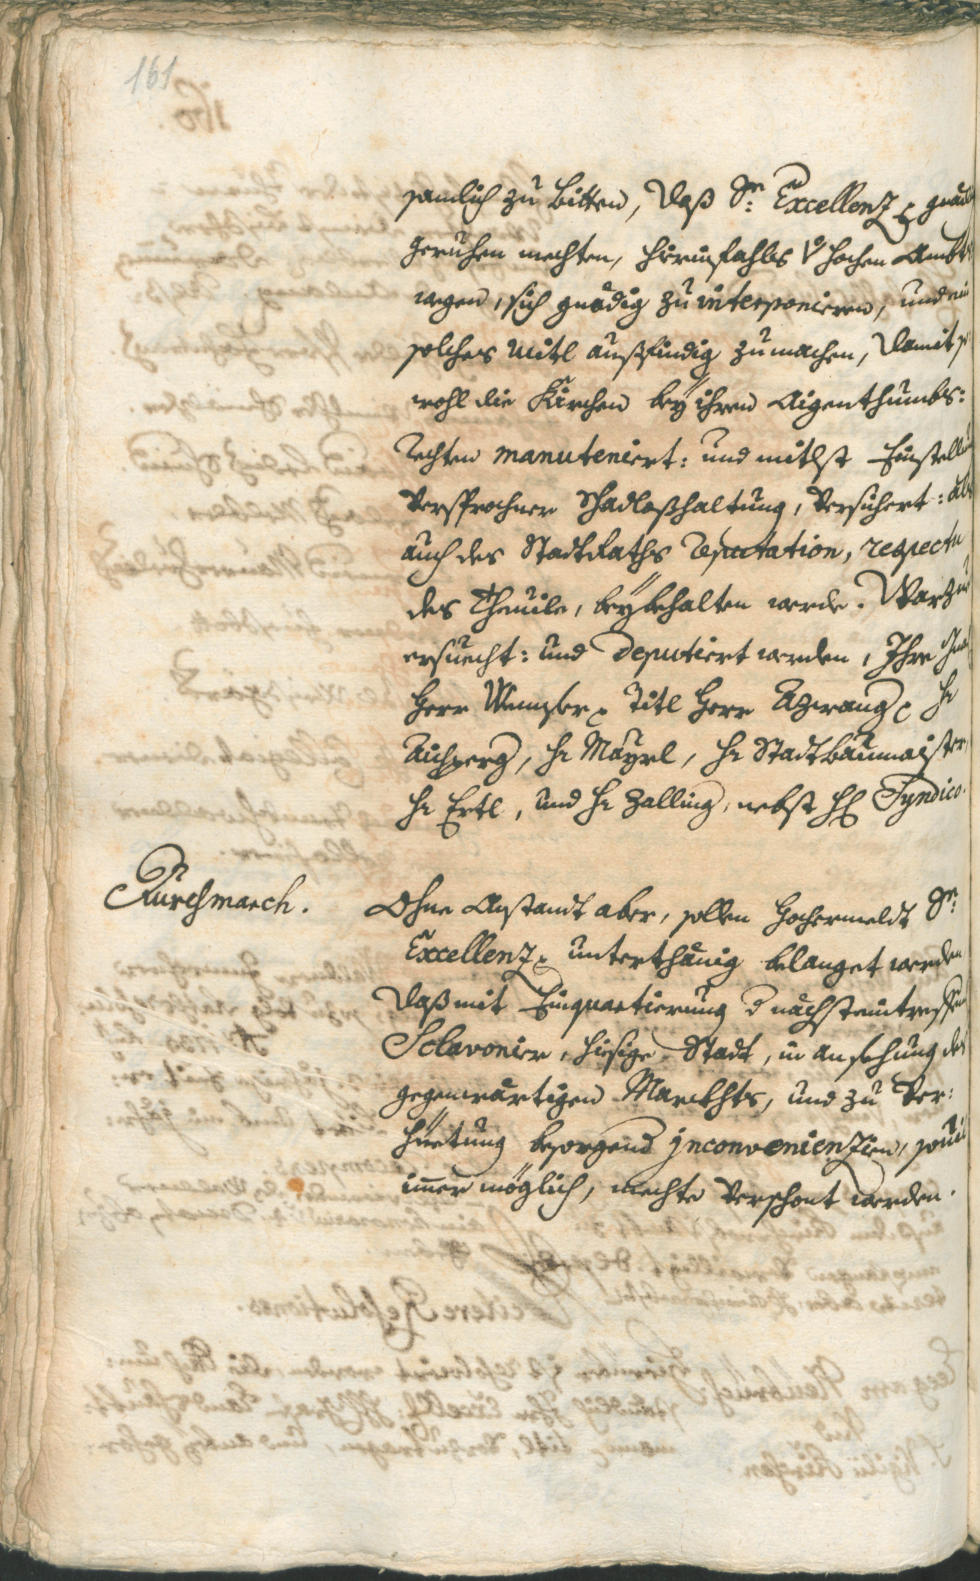 161
samlich zu bitten, daß Sr: Excellenz gnädi
geruhen mechten, hierinfahls hochen Ambts
wegen, sich gnädig zu interponieren, und ein
solches Mitl außfindig zumachen, damit so
wohl die Kirchen bey ihren Aigenthumbs:
rechten manuteniert: und mitlst Einstellu
versprochner Schadloßhaltung, versichert: als
auch des Stadt Raths Reputation, respectu
des beybehalten werde. Warzue
ersuecht: und deputiert werden, Ihre
Herr Menz Titl Herr Azwang, H
Aichperg, H Mayrl, H Stadtbaumaister
H Ertl, und H Zalling, nebst H Syndico.
Durchmarch.
Ohne Anstandt aber, sollen hochermeldt Sr:
Excellenz unterthänig belanget werden
daß mit Einquartierung d nächsteintreffen
Sclavonier, hiesige Stadt, in ansehung des
gegenwärtigen Marckhts, und zu Ver:
hüettung besorgend jnconvenienzien, sovil
imer möglich, mechte verschont werden.